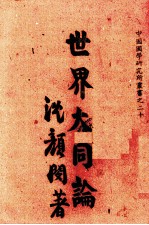 中國國學研究所叢書之二十
世界大同論
沈顏閔著